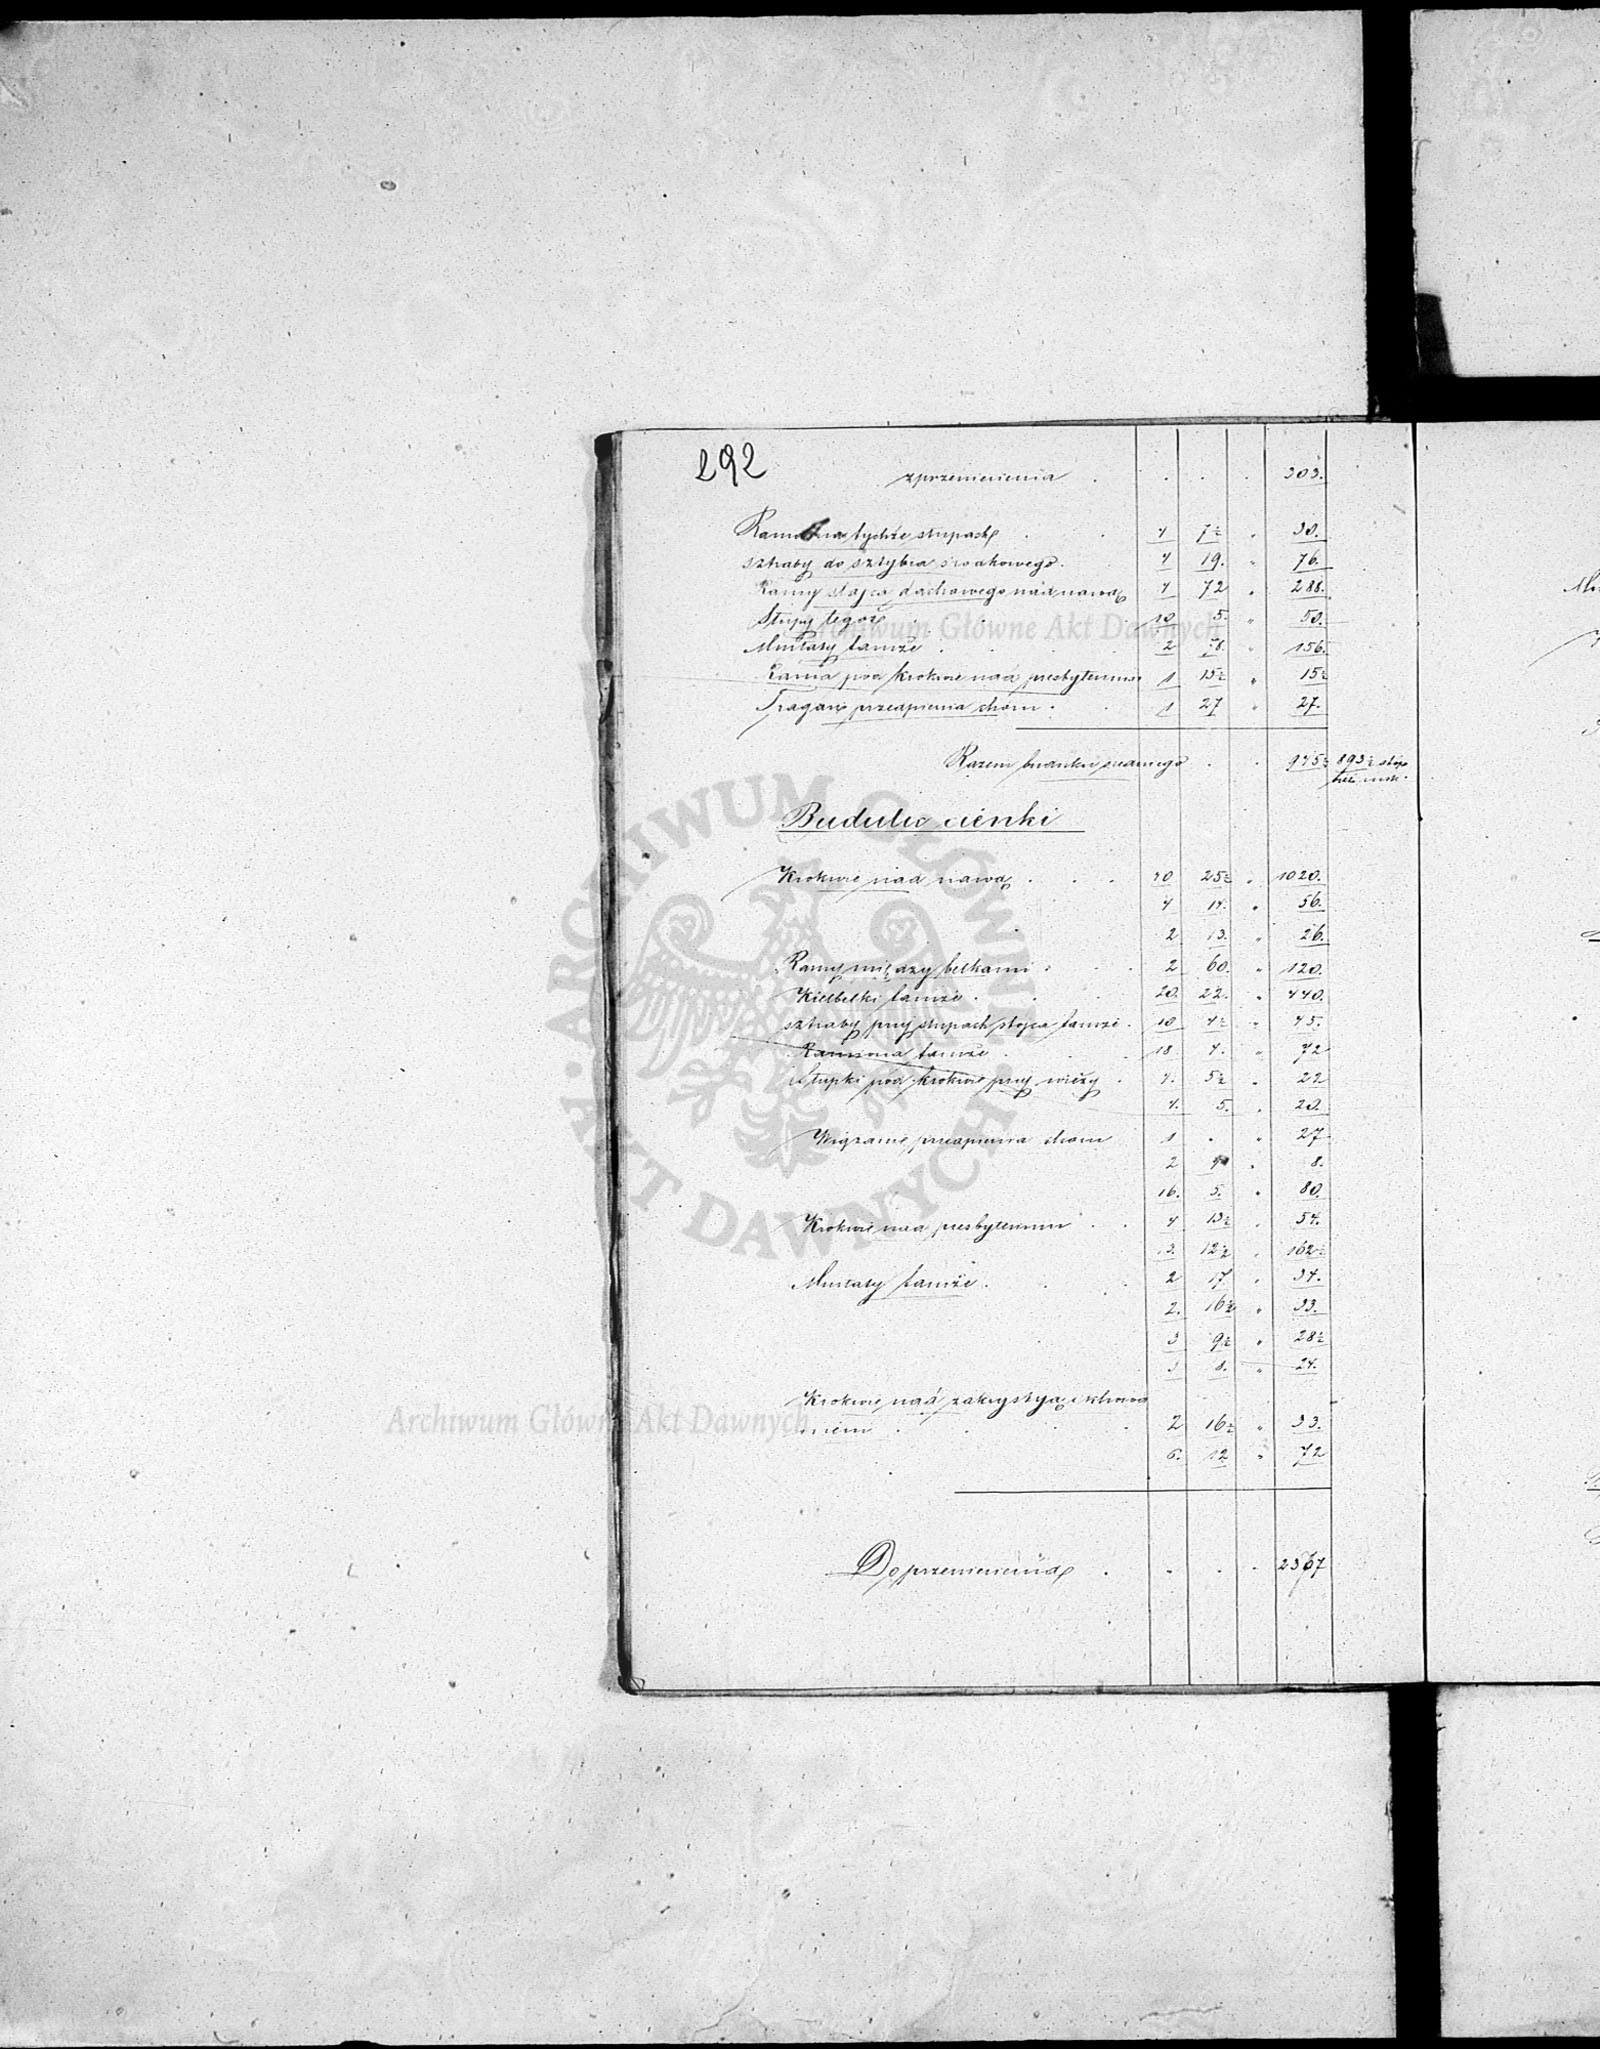 292
z przeniesienia . . . . 303.
Ramy na tychże słupach . . 4 7½ " 30.
sztraby do sztybra środkowego . 4 19. " 76.
Ramy stojca dachowego nad nawą 4 72 " 288.
Słupy tegoż . . 10 5. " 50.
Murłaty tamże . . 2 78. " 156.
Rama pod krokwie nad presbyterium 1 15½ " 15½
Tragarz przeapienia choru . . 1 27 " 27.
Razem budulcu średniego . . 975½ 893½ stóp
bież. miar.
Budulec cienki
Krokwie nad nawą . . . 40 25½ " 1020.
4 14. " 56.
2 13. " 26.
Ramy między belkami . . . 2 60. " 120.
Kielbelki tamże . . . 20. 22. " 440.
sztraby przy słupach stojca tamże . 10 4½ " 45.
tamże . . . 18 4. " 72
Słupki pod krokwie przy wieży . 4. 5½ " 22
4. 5. " 20.
Wiązanie przeapienia choru 1 . " 27
2 4 " 8.
16. 5. " 80.
Krokwie nad presbyterium . . 4 13½ " 54.
13. 12½ " 162½
Murłaty tamże . . . 2 17 " 34.
2. 16½ " 33.
3 9½ " 28½
3 8. " 24.
Krokwie nad zakrystyą
niem . . . . 2 16½ " 33.
6. 12 " 72
Do przeniesienia . . . . 2367
Archiwum Główne Akt Dawnych
Archiwum Główne Akt Dawnych
ARCHIWUM GŁÓWNE AKT DAWNYCH